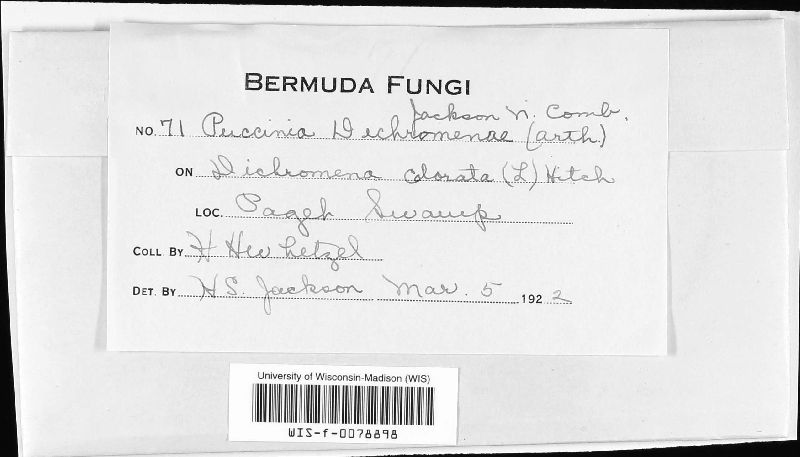 BERMUDA FUNGI
Jackson n. Comb.
NO. 71 Puccinia Dichromenae (Arth.)
ON Dichromena colorata (L) Hitch
LOC. Paget Swamp
COLL. BY H H Whetzel
DET. BY H S. Jackson Mar. 5 1922
University of Wisconsin-Madison (WIS)
WIS-f-0078898